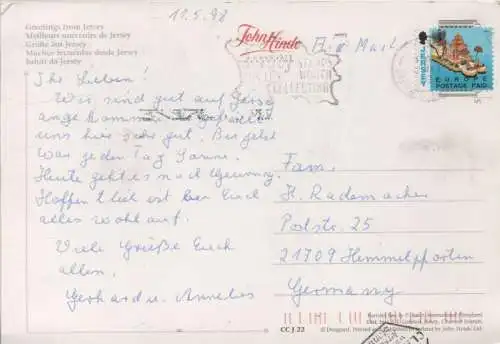 11.5.98
Greetings from Jersey
Meilleurs souvenirs de Jersey
Grüße aus Jersey
Muchos recuerdos desde Jersey
Saluti da Jersey
John Hinde
Air Mail
JERSEY STAMPS
WORTH
COLLECTING
EUROPE
POSTAGE PAID
Ihr Lieben!
Wir sind gut auf Jersey
angekommen. Es gefällt
uns hier sehr gut. Bis jetzt
war jeden Tag Sonne.
Heute geht es nach Guernsey.
Hoffentlich ist bei Euch
alles wohlauf.
Viele Grüße Euch
allen.
Gerhard u. Annelies
Fam.
H. Rademacher
Poststr. 25
21709 Himmelpforten
Germany
CCJ 22